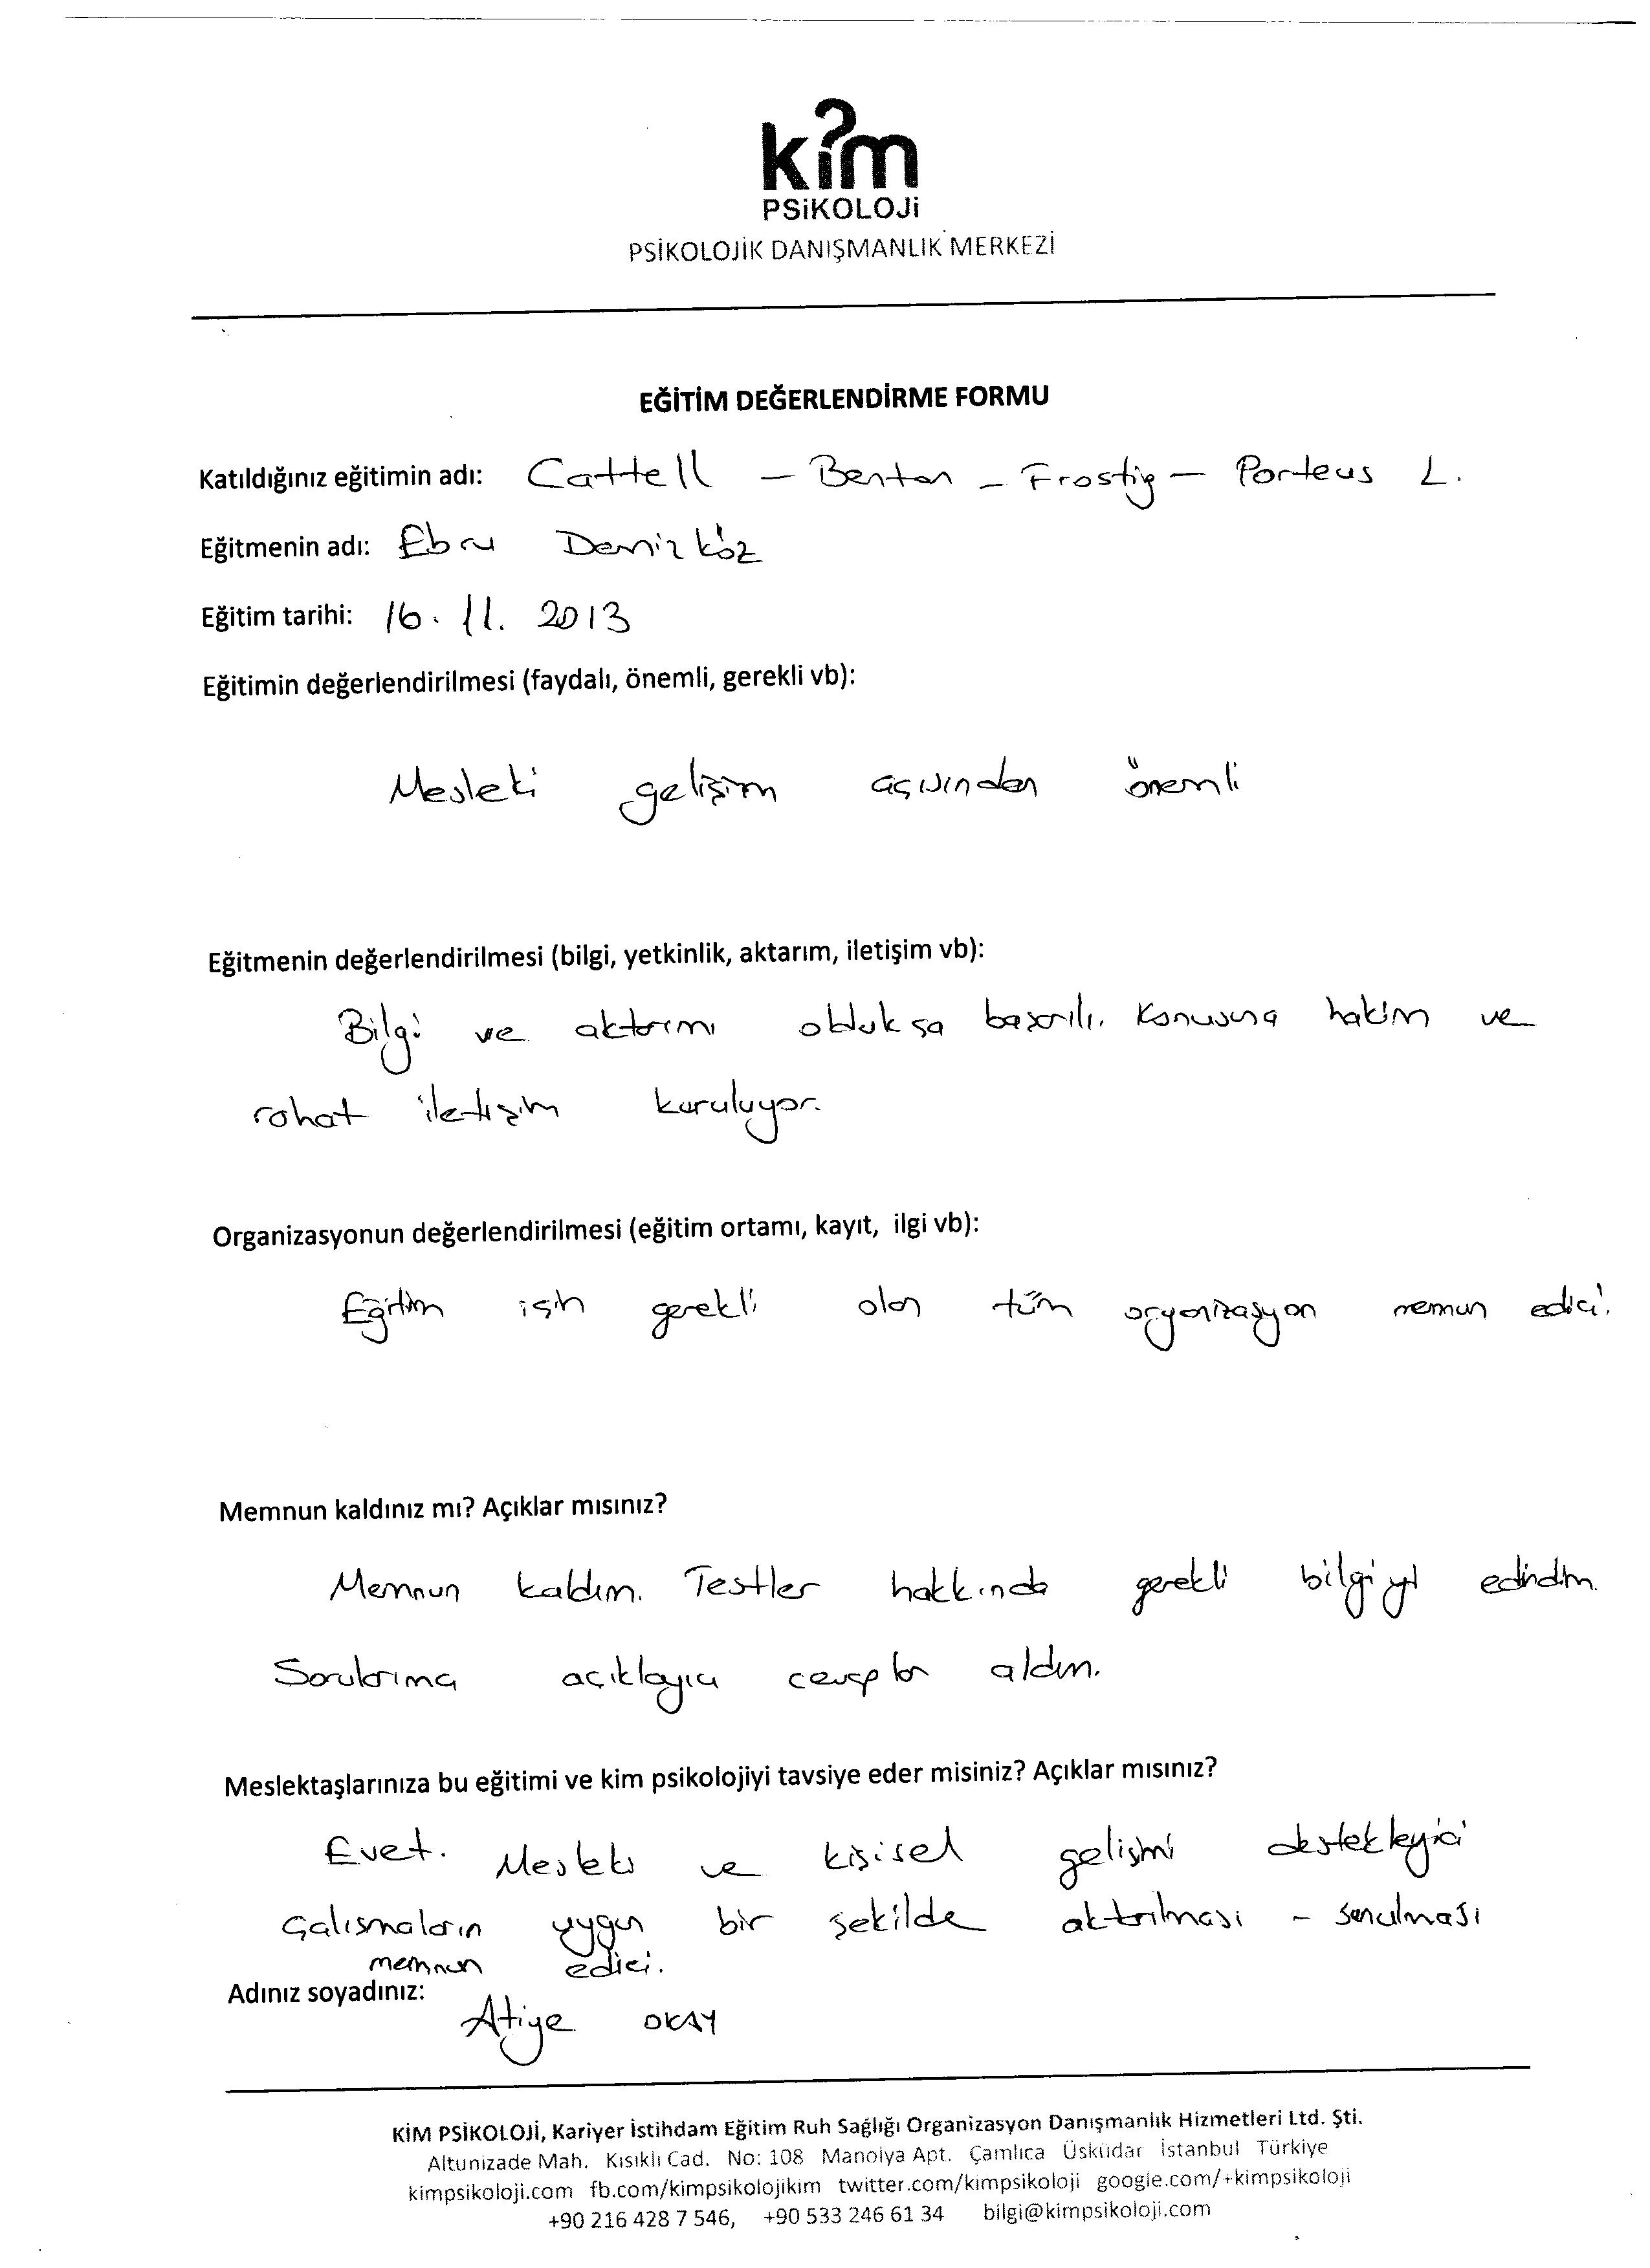 kim
PSiKOLOJi
PSİKOLOJİK DANIŞMANLIK MERKEZİ
EĞİTİM DEĞERLENDİRME FORMU
Katıldığınız eğitimin adı: Cattell - Benton - Frostig - Porteus L.
Eğitmenin adı: Ebru Demirköz
Eğitim tarihi: 16.11.2013
Eğitimin değerlendirilmesi (faydalı, önemli, gerekli vb):
Mesleki gelişim açısından önemli
Eğitmenin değerlendirilmesi (bilgi, yetkinlik, aktarım, iletişim vb):
Bilgi ve aktarımı oldukça başarılı. Konusuna hakim ve
rahat iletişim kuruluyor.
Organizasyonun değerlendirilmesi (eğitim ortamı, kayıt, ilgi vb):
Eğitim için gerekli olan tüm organizasyon memnun edici.
Memnun kaldınız mı? Açıklar mısınız?
Memnun kaldım. Testler hakkında gerekli bilgiyi edindim.
Sorularıma açıklayıcı cevaplar aldım.
Meslektaşlarınıza bu eğitimi ve kim psikolojiyi tavsiye eder misiniz? Açıklar mısınız?
Evet. Mesleki ve kişisel gelişimi destekleyici
Çalışmaların uygun bir şekilde aktarılması - sunulması
memnun edici.
Adınız soyadınız:
Atiye OKAY
KİM PSİKOLOJİ, Kariyer İstihdam Eğitim Ruh Sağlığı Organizasyon Danışmanlık Hizmetleri Ltd. Şti.
Altunizade Mah. Kısıklı Cad. No: 108 Manolya Apt. Çamlıca Üsküdar İstanbul Türkiye
kimpsikoloji.com fb.com/kimpsikolojikim twitter.com/kimpsikoloji google.com/+kimpsikoloji
+90 216 428 7 546, +90 533 246 61 34 bilgi@kimpsikoloji.com